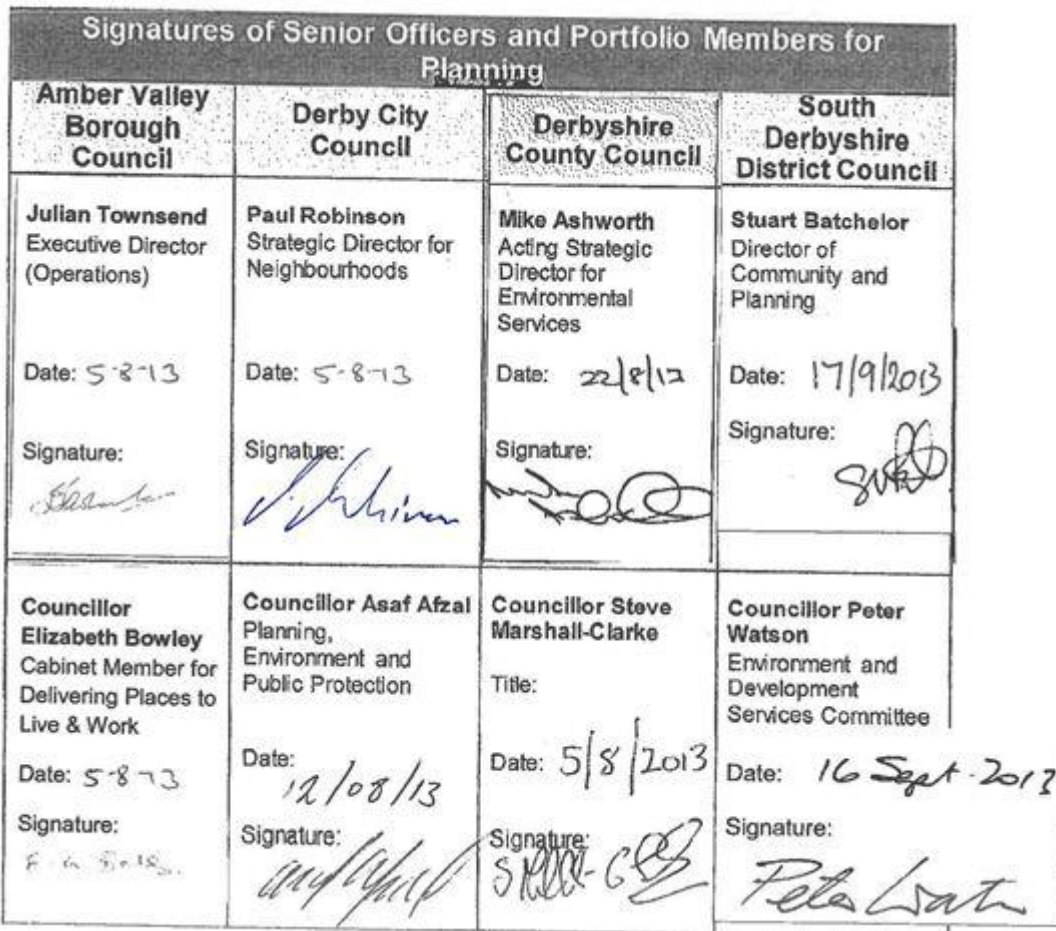 Signatures of Senior Officers and Portfolio Members for
Planning
Amber Valley
Borough
Council
Derby City
Council
Derbyshire
County Council
South
Derbyshire
District Council
Julian Townsend
Executive Director
(Operations)
Date: 5-8-13
Signature:
Paul Robinson
Strategic Director for
Neighbourhoods
Date: 5-8-13
Signature:
Mike Ashworth
Acting Strategic
Director for
Environmental
Services
Date: 22/8/13
Signature:
Stuart Batchelor
Director of
Community and
Planning
Date: 17/9/2013
Signature:
Councillor
Elizabeth Bowley
Cabinet Member for
Delivering Places to
Live & Work
Date: 5-8-13
Signature:
Councillor Asaf Afzal
Planning,
Environment and
Public Protection
Date: 12/08/13
Signature:
Councillor Steve
Marshall-Clarke
Title:
Date: 5/8/2013
Signature:
Councillor Peter
Watson
Environment and
Development
Services Committee
Date: 16 Sept. 2013
Signature:
Peter Watson